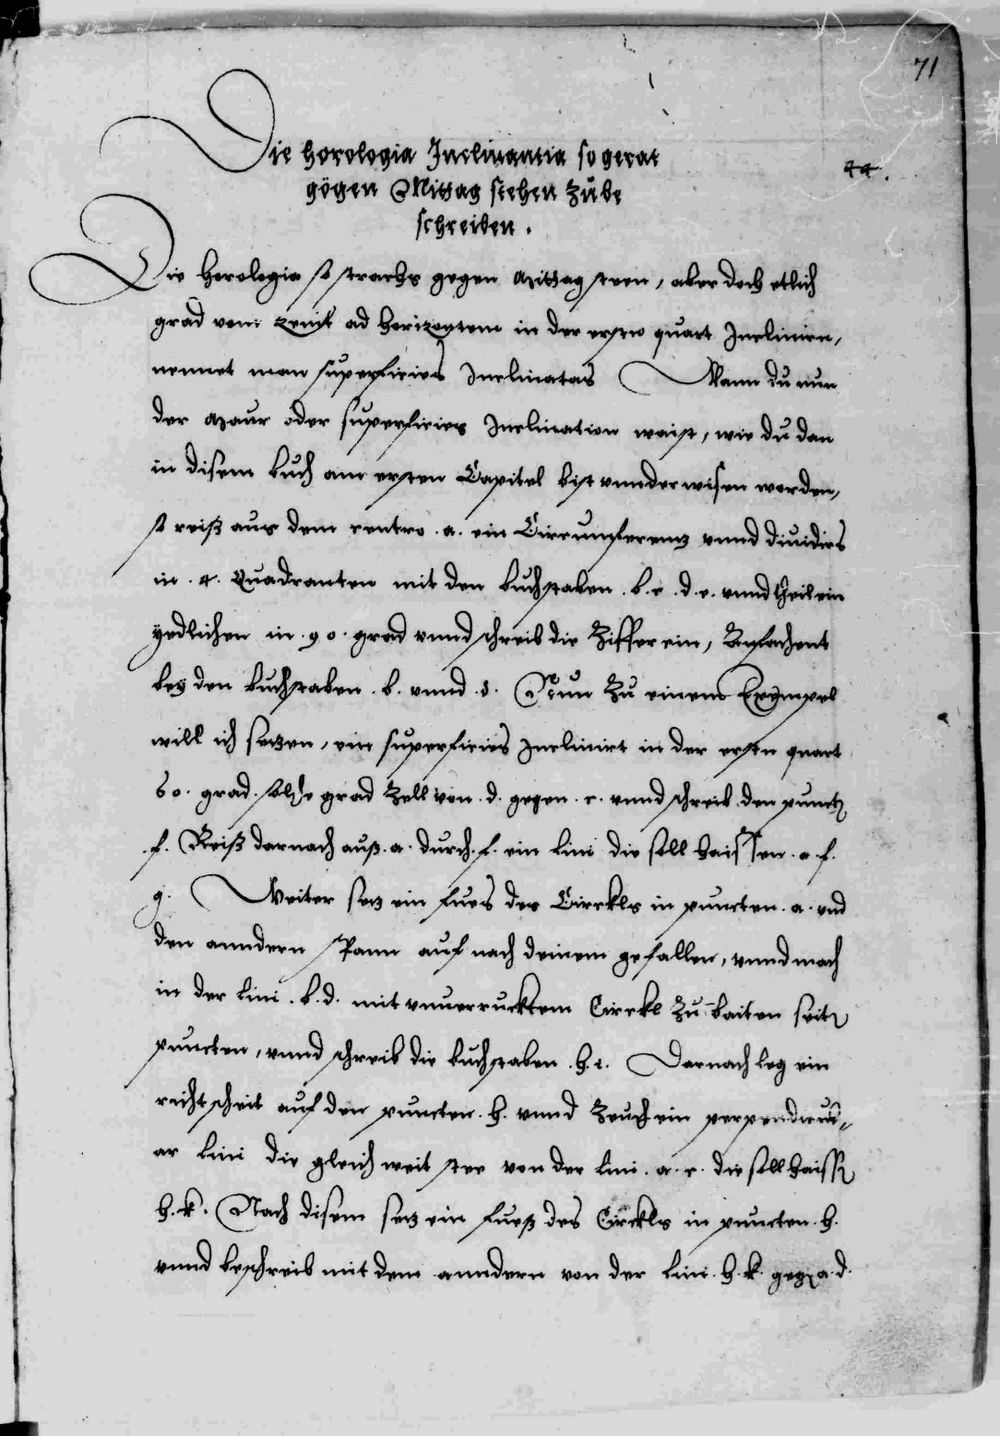 71
Die horologia Inclinantia so gerat
gögen Mittag stehen zube
schreiben.
44.
Die horologia so strackhs gegen Mittag steen, aber doch etlich
grad vom zenit ad horizontem in der ersten quart Inclinirn,
nennet man superficies Inclinatas Wann du nun
der Maur oder superficies Inclination waist, wie du dan
in disem buch am ersten Capitel bist vnnderwisen worden,
so reiß aus dem centro .a. ein Circumferentz vnnd diuidirs
in .4. Quadranten mit den buchstaben .b.c.d.e. vnnd theil ein
yedlichen in .90. grad vnnd schreib die Ziffer ein, Anfachent
bey den buchstaben .b. vnnd .d. Nun zu einem Exempel
will ich setzen, ein superficies Inclinirt in der ersten quart
60. grad. solche grad Zell von .d. gegen .c. vnnd schreib den punct
.f. Reiß darnach auß .a. durch .f. ein lini die soll haissen .a.f.
g. Weiter setz ein fues des Circkls in puncten .a. vnd
den anndern spann auf nach deinem gefallen, vnnd mach
in der lini .b.d. mit vnuerrucktem Circkl zu baiten seitn
puncten, vnnd schreib die buchstaben .h.i. Darnach leg ein
richtscheit auf den puncten .h. vnnd zeuch ein perpendicul-
ar lini die gleich weit stee von der lini .a.c. die soll haissn
h.k. Nach disem setz ein fueß des Circkls in puncten .h.
vnnd beschreib mit dem anndern von der lini .h.k. gegn a.d.